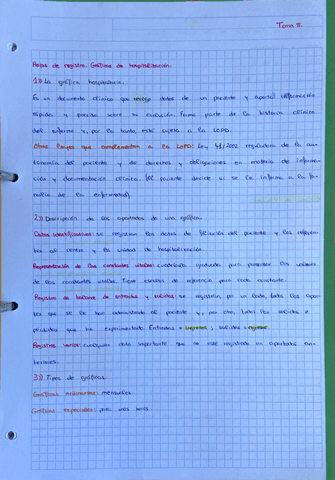 Tema 8.
Hojas de registro. Gráficas de hospitalización.
1.) La gráfica hospitalaria.
Es un documento clínico que recoge datos de un paciente y aporta información
rápida y precisa sobre su evolución. Forma parte de la historia clínica
del enfermo y, por lo tanto, está sujeta a la LOPD.
Otras leyes que complementan a la LOPD: Ley 41/2002 reguladora de la au-
tonomía del paciente y de derechos y obligaciones en materia de informa-
ción y documentación clínica. (El paciente decide si se le informa a la fa-
milia de la enfermedad).
2.) Descripción de los apartados de una gráfica.
Datos identificativos: se registran los datos de filiación del paciente y los referen-
tes al centro y la unidad de hospitalización.
Representación de las constantes vitales: cuadrícula graduada para presentar los valores
de las constantes vitales. Tiene escalas de referencia para cada constante.
Registro de balance de entradas y salidas: se registran por un lado, todos los apor-
tes que se le han administrado al paciente y, por otro, todas las salidas o
pérdidas que ha experimentado. Entradas = ingresos; salidas = egresos.
Registros varios: cualquier dato importante que no esté registrado en apartados an-
teriores.
3.) Tipos de gráficas.
Gráficas mensuales.
Gráficas especiales: para